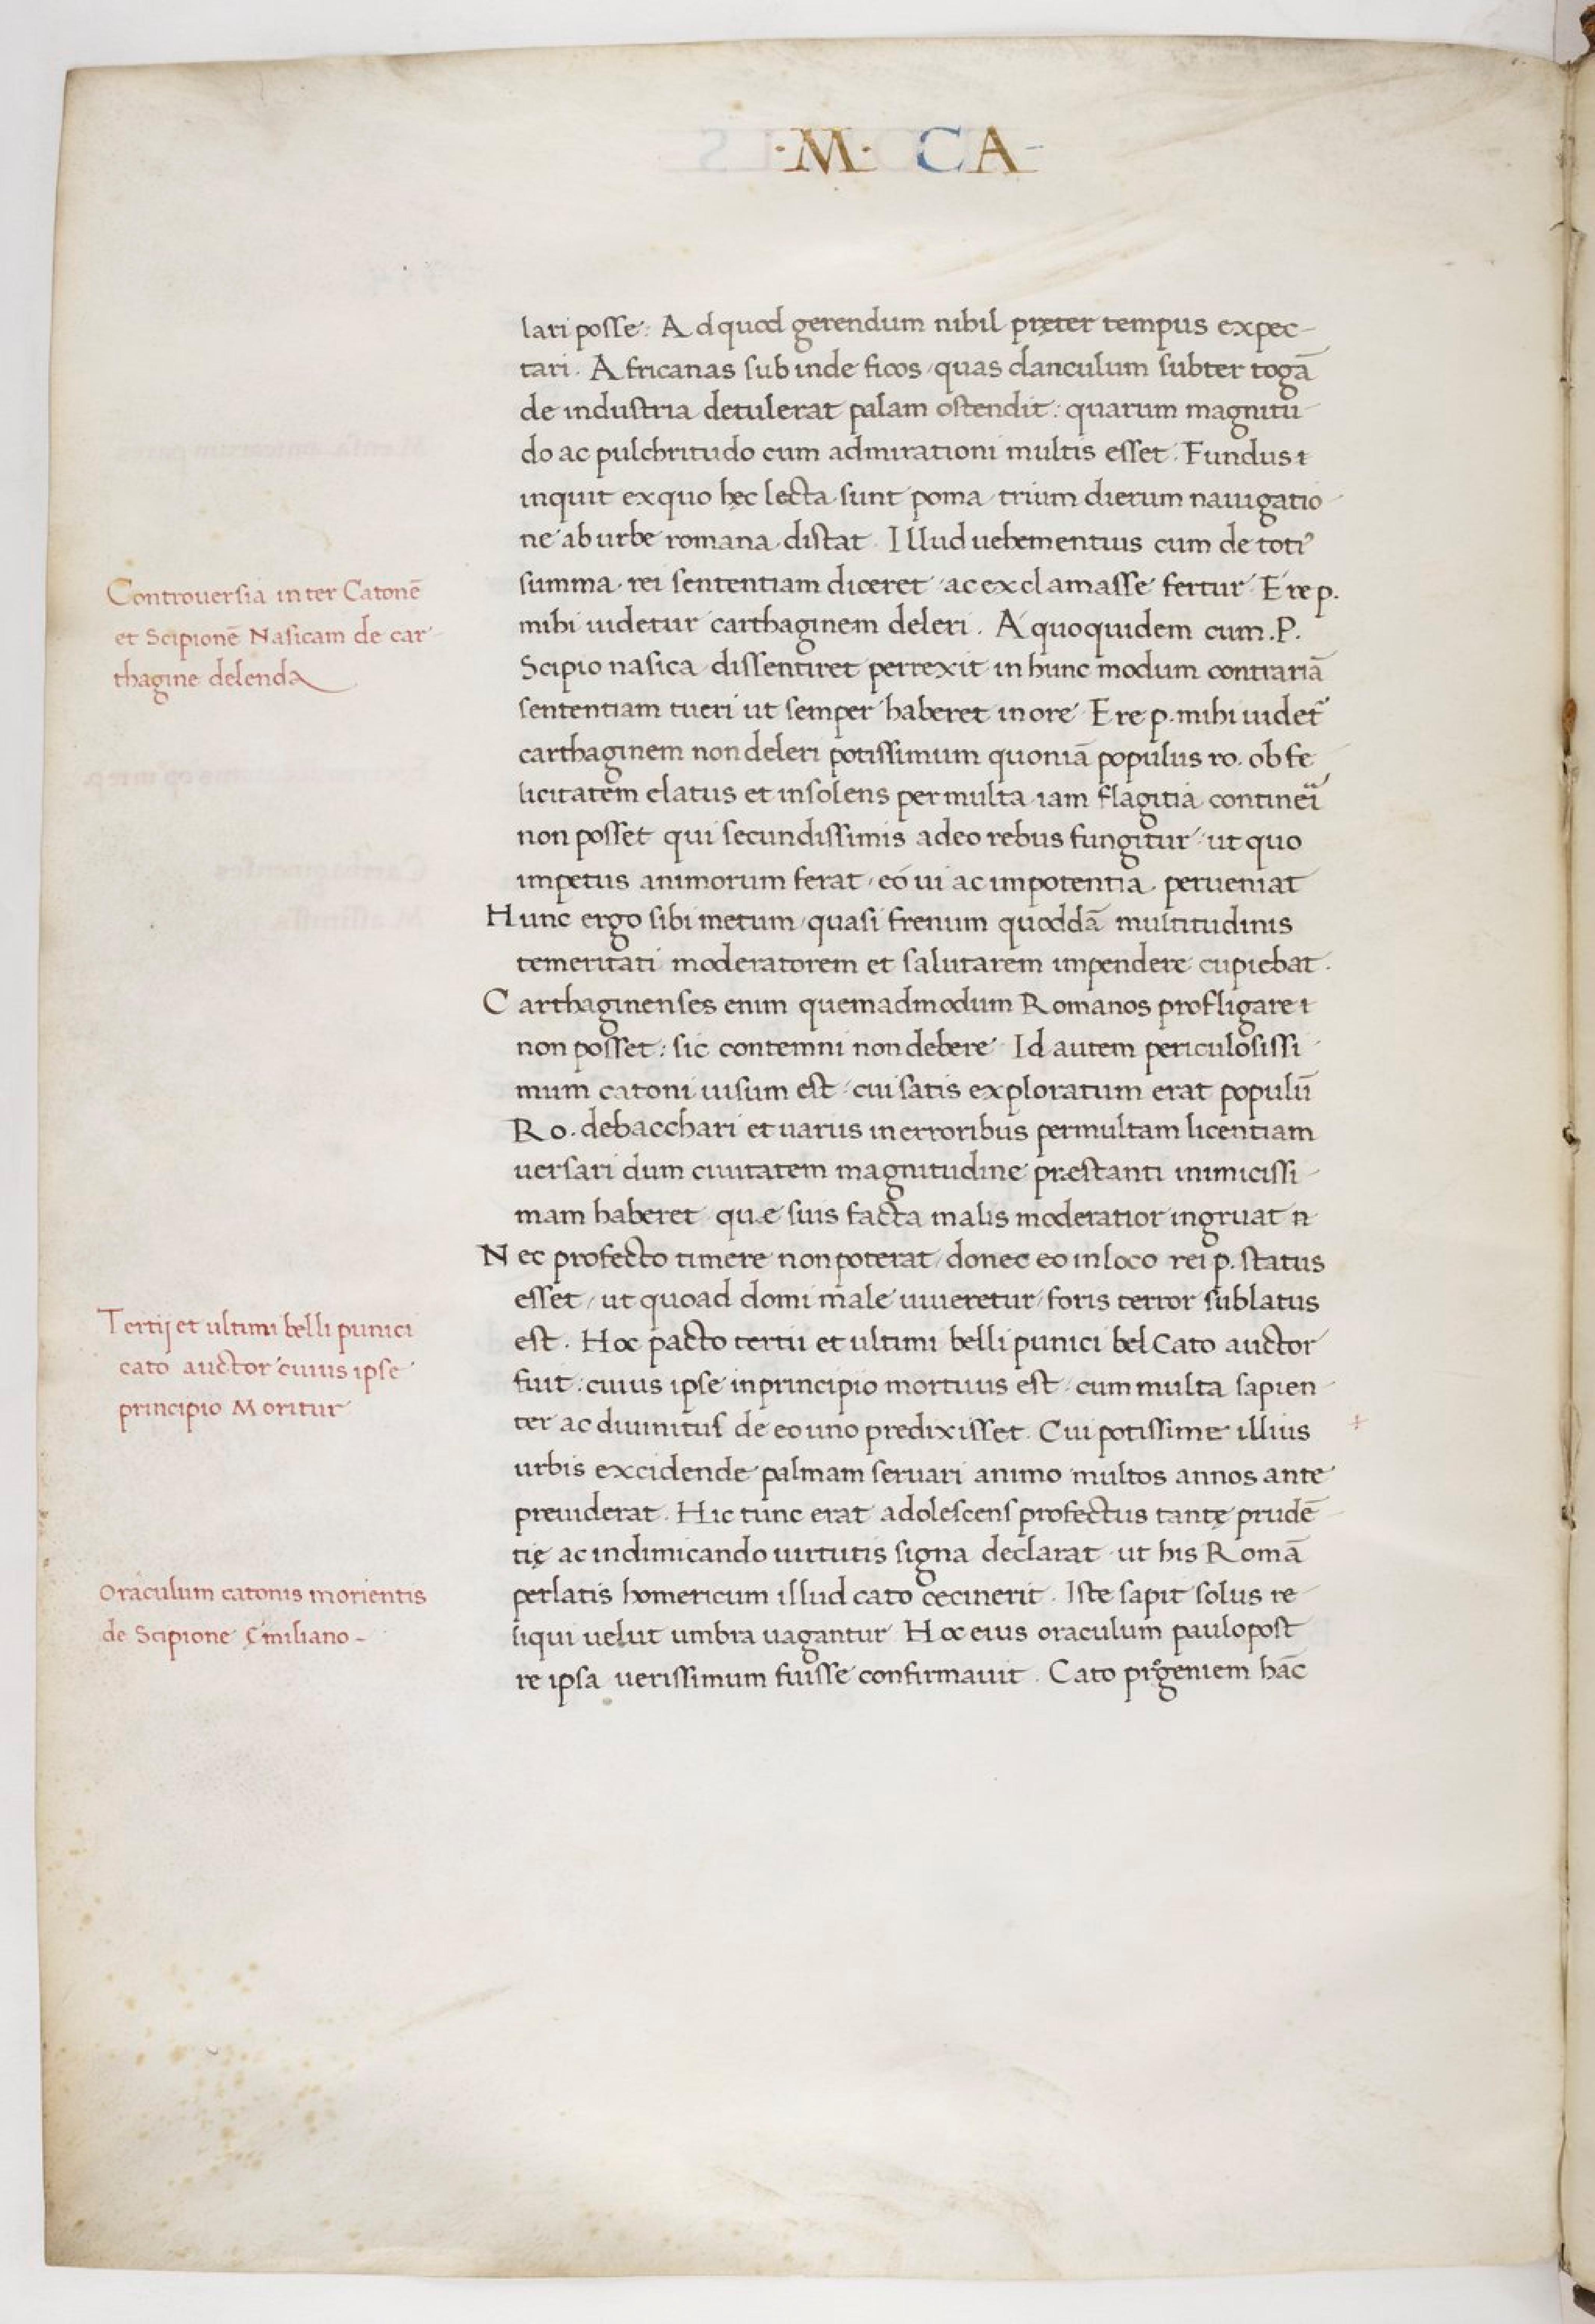 ·M· CA-
lari posse: Ad quod gerendum nihil pręter tempus expec-
tari. Africanas subinde ficos, quas clanculum subter togā
de industria detulerat palam ostendit: quarum magnitu-
do ac pulchritudo cum admirationi multis esset. Fundus
inquit ex quo hęc lecta sunt poma trium dierum nauigatio-
ne ab urbe romana distat. Illud uehementius cum de toti᾽
summa rei sententiam diceret ac exclamasse fertur. E re p.
mihi uidetur carthaginem deleri. A quo quidem cum .P.
Scipio nasica dissentiret perrexit in hunc modum contrariā
sententiam tueri ut semper haberet in ore. E re p. mihi uidet᷑
carthaginem non deleri potissimum quoniā populus ro. ob fe-
licitatem elatus et insolens permulta iam flagitia contineri
non posset qui secundissimis adeo rebus fungitur, ut quo
impetus animorum ferat, eó ui ac impotentia perueniat
Hunc ergo sibi metum, quasi frenum quoddā multitudinis
temeritati moderatorem et salutarem impendere cupiebat.
Carthaginenses enim quemadmodum Romanos profligare
non posset: sic contemni non debere. Id autem periculosissi-
mum catoni uisum est, cui satis exploratum erat populū
Ro. debacchari et uariis in erroribus permultam licentiam
uersari dum ciuitatem magnitudine præstanti inimicissi-
mam haberet quæ suis facta malis moderatior ingruat n
Nec profecto timere non poterat, donec eo in loco rei p. status
esset, ut quoad domi male uiueretur, foris terror sublatus
est. Hoc pacto tertii et ultimi belli punici bel Cato auctor
fuit: cuius ipse in principio mortuus est, cum multa sapien-
ter ac diuinitus de eo uno predixisset. Cui potissime illius
urbis excidende palmam seruari animo multos annos ante
preuiderat. Hic tunc erat adolescens profectus tantę prudē-
tię ac in dimicando uirtutis signa declarat ut his Romā
perlatis homericum illud cato cecinerit. Iste sapit solus re-
liqui uelut umbra uagantur. Hoc eius oraculum paulo post
re ipsa uerissimum fuisse confirmauit. Cato progeniem hāc
Controuersia inter Catonē
et Scipionē Nasicam de car-
thagine delenda
Tertij et ultimi belli punici
cato auctor cuius ipse
principio Moritur
Oraculum catonis morientis
de Scipione Ęmiliano-